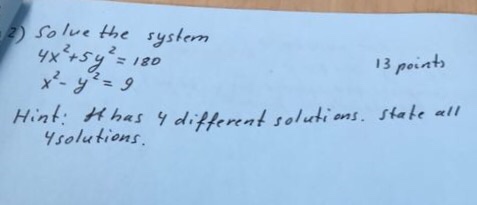 2) Solve the system
4x²+5y²= 180
13 points
x²- y²= 9
Hint: It has 4 different solutions. State all
4 solutions.